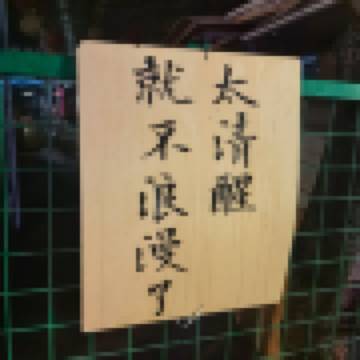 太清醒
就不浪漫了